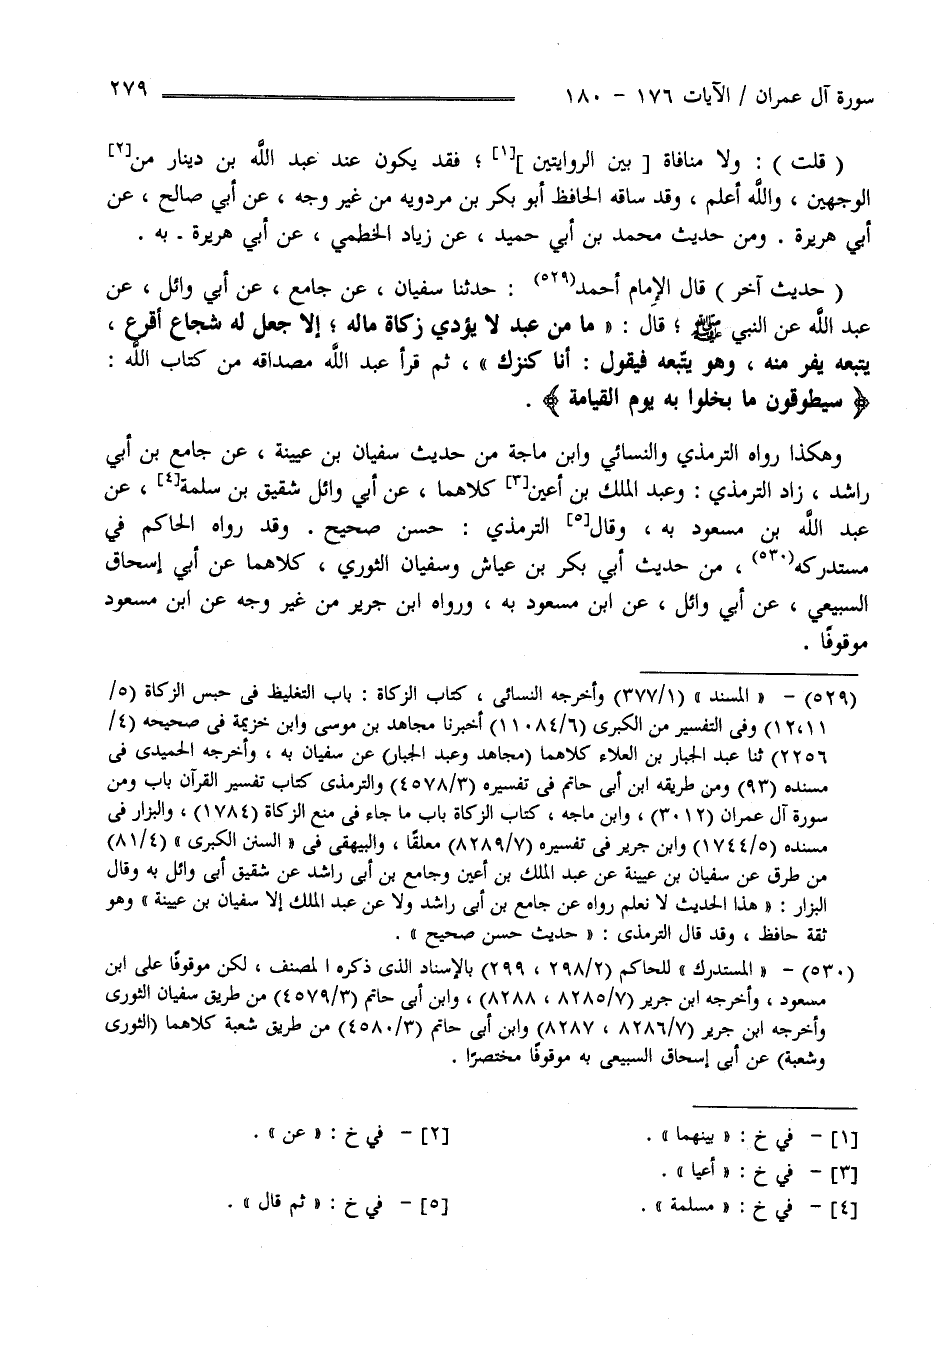 سورة آل عمران / الآيات ١٧٦ - ١٨٠ ٢٧٩
( قلت ) : ولا منافاة [ بين الروايتين ][١] ؛ فقد يكون عند عبد الله بن دينار من[٢]
الوجهين ، والله أعلم ، وقد ساقه الحافظ أبو بكر بن مردويه من غير وجه ، عن أبي صالح ، عن
أبي هريرة . ومن حديث محمد بن أبي حميد ، عن زياد الخطمي ، عن أبي هريرة - به .
( حديث آخر ) قال الإمام أحمد(٥٢٩) : حدثنا سفيان ، عن جامع ، عن أبي وائل ، عن
عبد الله عن النبي ﷺ ؛ قال : « ما من عبد لا يؤدي زكاة ماله ؛ إلا جعل له شجاع أقرع ،
يتبعه يفر منه ، وهو يتّبعه فيقول : أنا كنزك » ، ثم قرأ عبد الله مصداقه من كتاب الله :
﴿ سيطوقون ما بخلوا به يوم القيامة ﴾ .
وهكذا رواه الترمذي والنسائي وابن ماجة من حديث سفيان بن عيينة ، عن جامع بن أبي
راشد ، زاد الترمذي : وعبد الملك بن أعين[٣] كلاهما ، عن أبي وائل شقيق بن سلمة[٤] ، عن
عبد الله بن مسعود به ، وقال[٥] الترمذي : حسن صحيح . وقد رواه الحاكم في
مستدركه(٥٣٠) ، من حديث أبي بكر بن عياش وسفيان الثوري ، كلاهما عن أبي إسحاق
السبيعي ، عن أبي وائل ، عن ابن مسعود به ، ورواه ابن جرير من غير وجه عن ابن مسعود
موقوفًا .
(٥٢٩) - « المسند » (٣٧٧/١) وأخرجه النسائى ، كتاب الزكاة : باب التغليظ فى حبس الزكاة (٥/
١٢،١١) وفى التفسير من الكبرى (١١٠٨٤/٦) أخبرنا مجاهد بن موسى وابن خزيمة فى صحيحه (٤/
٢٢٥٦) ثنا عبد الجبار بن العلاء كلاهما (مجاهد وعبد الجبار) عن سفيان به ، وأخرجه الحميدى فى
مسنده (٩٣) ومن طريقه ابن أبى حاتم فى تفسيره (٤٥٧٨/٣) والترمذى كتاب تفسير القرآن باب ومن
سورة آل عمران (٣٠١٢) ، وابن ماجه ، كتاب الزكاة باب ما جاء فى منع الزكاة (١٧٨٤) ، والبزار فى
مسنده (١٧٤٤/٥) وابن جرير فى تفسيره (٨٢٨٩/٧) معلقًا ، والبيهقى فى « السنن الكبرى » (٨١/٤)
من طرق عن سفيان بن عيينة عن عبد الملك بن أعين وجامع بن أبى راشد عن شقيق أبى وائل به وقال
البزار : « هذا الحديث لا نعلم رواه عن جامع بن أبى راشد ولا عن عبد الملك إلا سفيان بن عيينة » وهو
ثقة حافظ ، وقد قال الترمذى : « حديث حسن صحيح » .
(٥٣٠) - « المستدرك » للحاكم (٢٩٨/٢ ، ٢٩٩) بالإسناد الذى ذكره ا لمصنف ، لكن موقوفًا على ابن
مسعود ، وأخرجه ابن جرير (٨٢٨٥/٧ ، ٨٢٨٨) ، وابن أبى حاتم (٤٥٧٩/٣) من طريق سفيان الثورى
وأخرجه ابن جرير (٨٢٨٦/٧ ، ٨٢٨٧) وابن أبى حاتم (٤٥٨٠/٣) من طريق شعبة كلاهما (الثورى
وشعبة) عن أبى إسحاق السبيعى به موقوفًا مختصرًا .
[١] - في خ : « بينهما » . [٢] - في خ : « عن » .
[٣] - في خ : « أعيا » .
[٤] - في خ : « مسلمة » . [٥] - في خ : « ثم قال » .